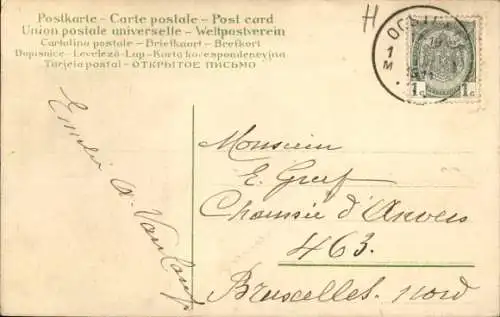 Postkarte - Carte postale - Post card
Union postale universelle - Weltpostverein
Cartolina postale - Briefkaart - Brefkort
Dopisnice - Levelező-Lap - Karta korespondencyjna
Tarjeta postal - ОТКРЫТОЕ ПИСЬМО
H
1
M
1c 1c
Monsieur
E. Greef
Chaussée d'Anvers
463.
Bruxelles. Nord
Emilie A.